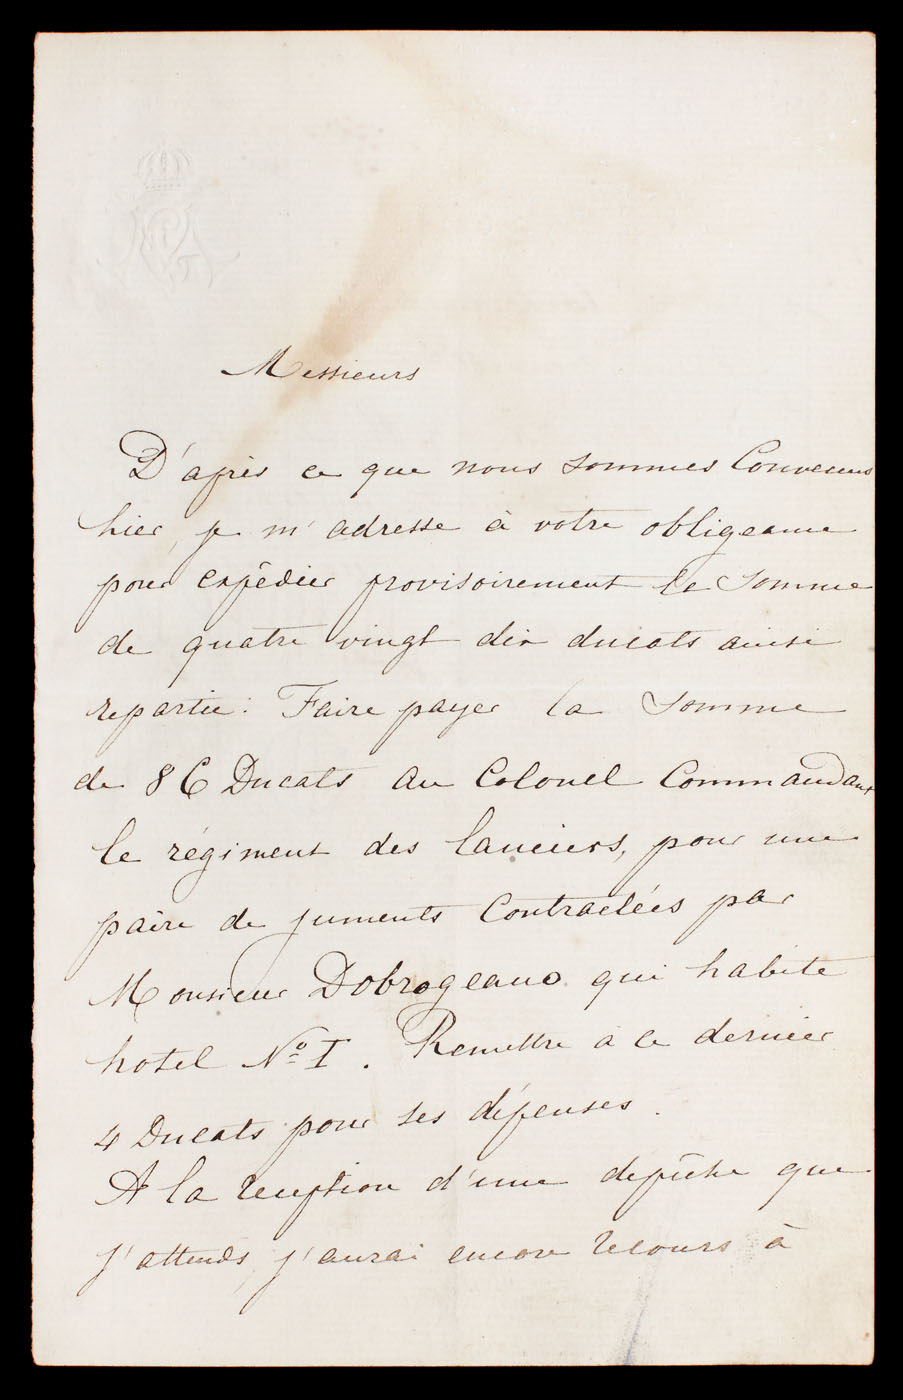 Messieurs
D'après ce que nous sommes Convenus
hier, je m'adresse à votre obligeance
pour expédier provisoirement la Somme
de quatre vingt dix ducats ainsi
repartie: Faire payer la Somme
de 86 Ducats au Colonel Commandant
le régiment des lanciers, pour une
paire de juments Contractées par
Monsieur Dobrogeano qui habite
hotel No I. Remettre à ce dernier
4 Ducats pour ses dépenses.
A la reception d'une depêche que
j'attends, j'aurai encore recours à